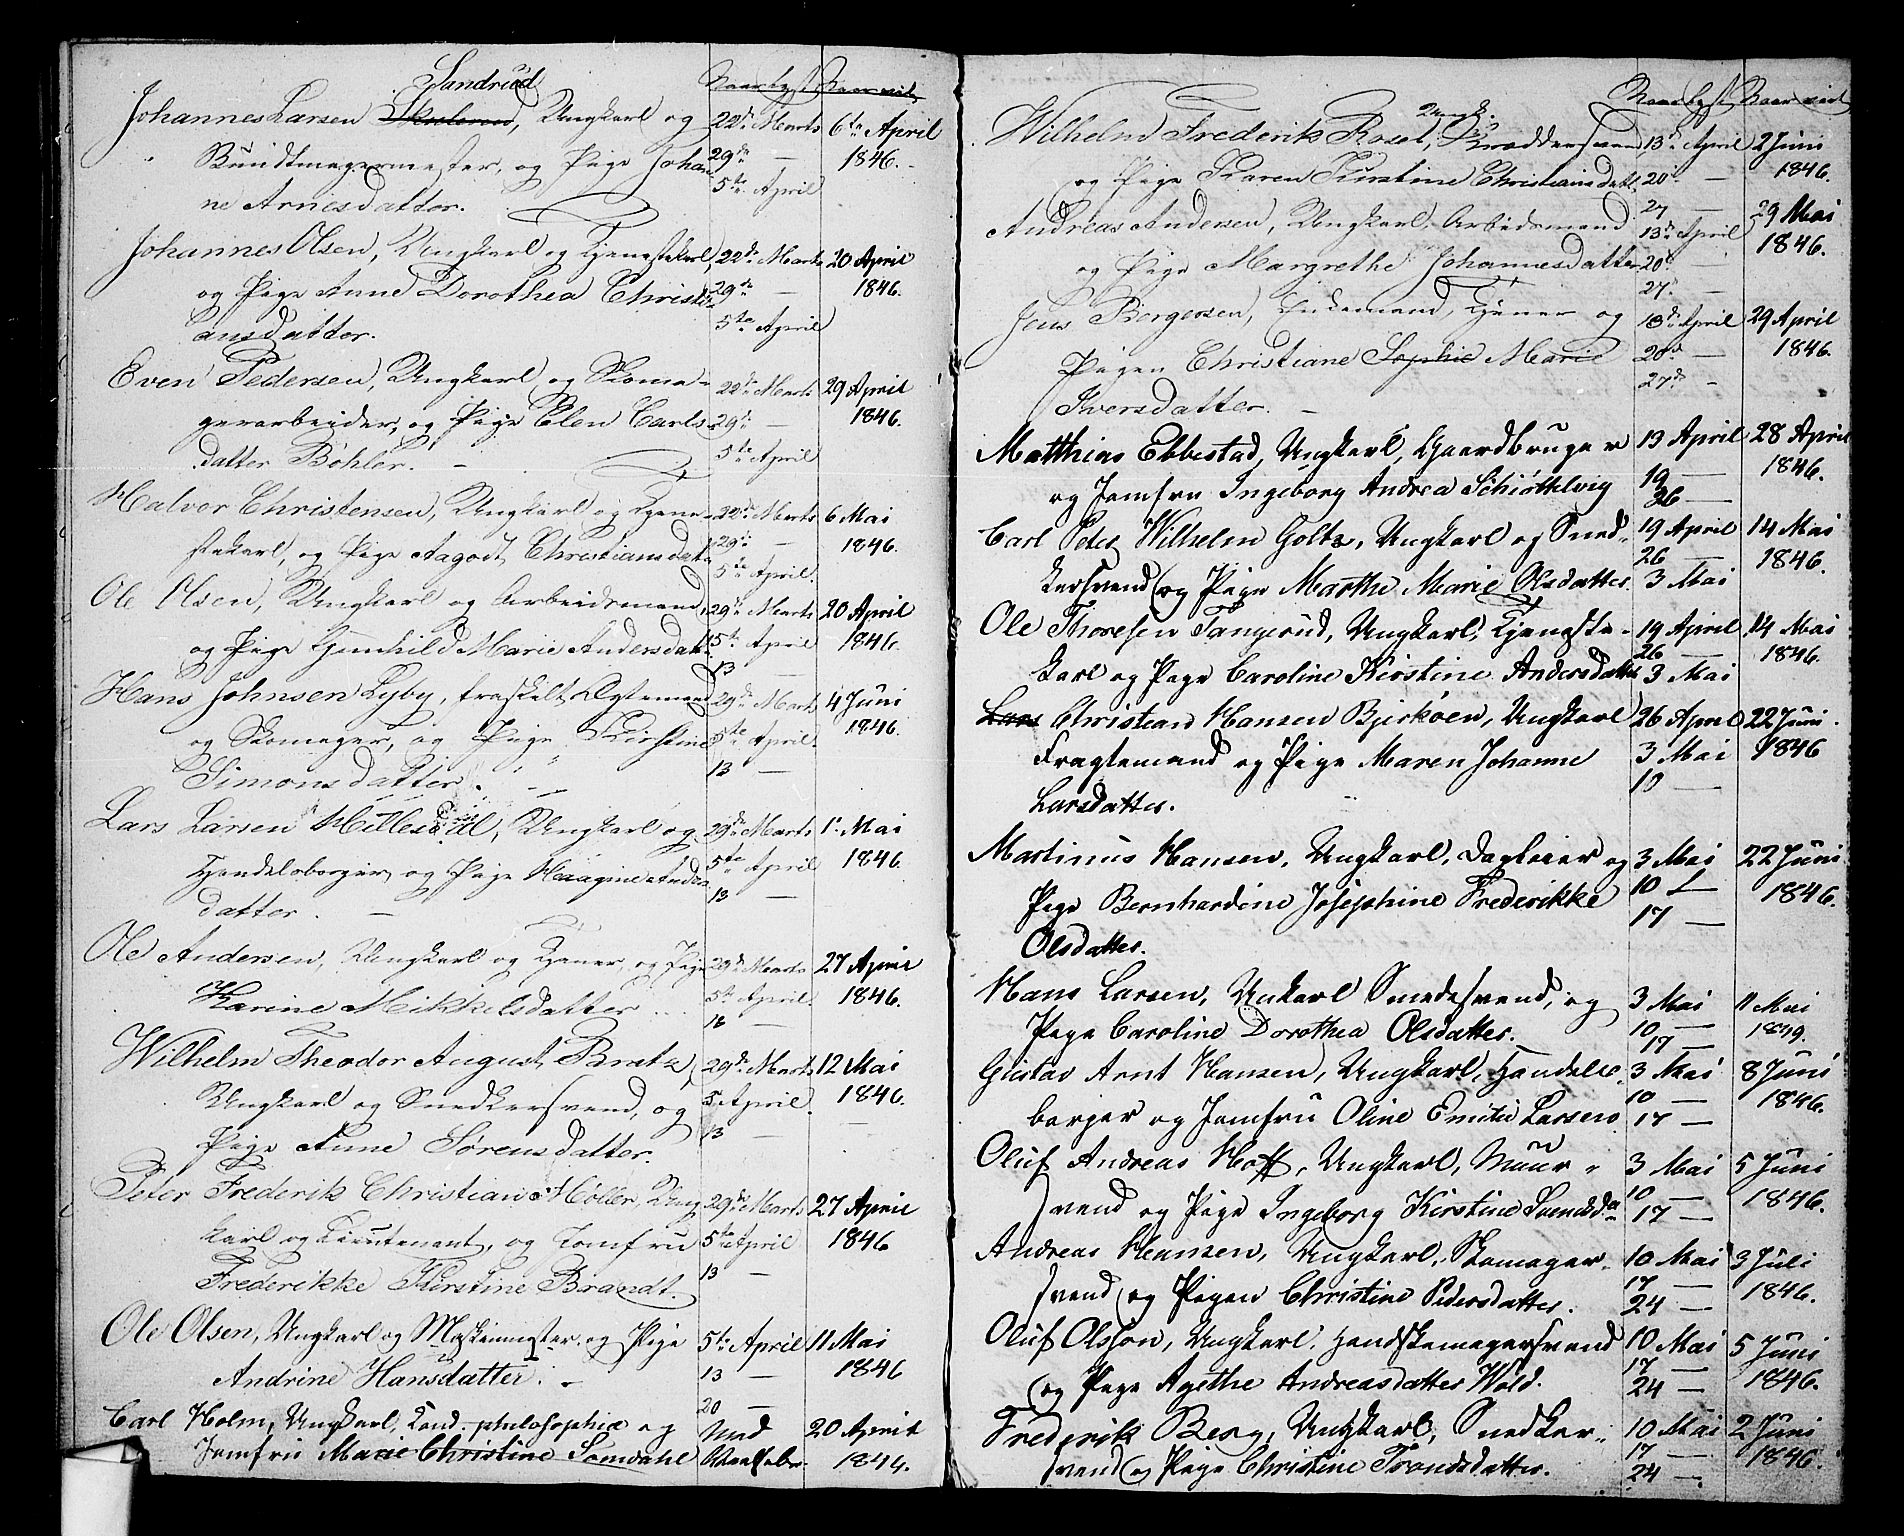 Sandrud
Naar lyst Naar viet
Johannes Larsen Skulerud, Ungkarl og 22de Marts 6te April
Bundtmagermester, og Pige Johan- 29de — 1846.
ne Arnesdatter. 5te April
Johannes Olsen, Ungkarl og Tjenestekarl, 22de Marts 20 April
og Pige Anne Dorothea Christi- 29de — 1846.
ansdatter. 5te April
Even Pedersen, Ungkarl og Skoma- 22de Marts 29 April
gerarbeider, og Pige Elen Carls- 29de — 1846.
datter Böhler. 5te April
Halvor Christensen, Ungkarl og Tjene- 22de Marts 6 Mai
stekarl, og Pige Aagodt Christiansdat- 29de — 1846.
5te April.
Ole Olsen, Ungkarl og Arbeidsmand, 29de Marts 20 April
og Pige Gunhild Marie Andersdatt 5te April 1846.
13 —
Hans Johnsen Lyby, fraskilt Ægtemand 29de Marts 4 Juni
og Skomager, og Pige Kirstine 5te April 1846.
Simonsdatter. 13 —
Lars Larsen Hillesdal, Ungkarl og 29de Marts 1. Mai
Handelsborger og Pige Anders 5te April 1846.
datter. 13 —
Ole Andersen, Ungkarl og Tjener, og Pige 29de Marts 27 April
Karine Mikkelsdatter 5te April 1846.
13 —
Wilhelm Theodor August Bratz, 29de Marts 12 Mai
Ungkarl og Snedkersvend, og 5 April. 1846.
Pige Anne Sørensdatter. 13 —
Peter Frederik Christian Møller, Ung 29de Marts 27 April
karl og Lieutenant, og Jomfru 5te April 1846
Frederikke Kirstine Brandt. 13 —
Ole Olsen, Ungkarl og Maskinmester og Pige 5te April 11 Mai
Andrine Hansdatter. 13 — 1846
20 —
Carl Holm, Ungkarl, Cand. philosophiæ og 20 April
Jomfru Marie Christine Somdahl 1844.
Naar lyst Naar viet
Wilhelm Frederik Roset, Ungk. Kræddersvend, 13de April 2 Juni
og Pige Karen Kirstine Christiansdatt. 20 — 1846.
27 —
Andreas Andersen, Ungkarl, Arbeidsmand 13de April 29 Mai
og Pige Margrethe Johannesdatter 20de — 1846.
27 —
Jens Borgersen, Enkemand, Tjener og 13de April 29 April
Pigen Christiane Sophie Marie 20de — 1846.
Iversdatter. — 27de —
Matthias Ebbestad, Ungkarl, Gaardbruger 13 April 28 April
og Jomfru Ingeborg Andrea Schiöttelvig 19 — 1846.
26 —
Carl Peter Wilhelm Goltz, Ungkarl og Sned- 19 April 14 Mai
26 — 1846.
kersvend og Pige Marthe Marie Olsdatter. 3 Mai
Ole Thoresen Tangerud, Ungkarl, Tjeneste- 19 April 14 Mai
26 — 1846.
karl og Pige Caroline Kirstine Andersdatter 3 Mai
Lars Christian Hansen Bjerköen, Ungkarl 26 April 22 Juni
Fragtemand og Pige Maren Johanne 3 Mai 1846
Larsdatter. 10 —
Martinus Hansen, Ungkarl, Dagleier og 3 Mai 22 Juni
Pige Bernhardine Josephine Frederikke 10 — 1846.
Olsdatter. 17 —
Hans Larsen, Unkarl Smedesvend, og 3 Mai 11 Mai
Pige Caroline Dorothea Olsdatter. 10 — 1849.
17 —
Gustav Arnt Hansen, Ungkarl, Handels- 3 Mai 8 Juni
10 — 1846.
borger og Jomfru Oline Emilie Larsen 17 —
Oluf Andreas Hoff, Ungkarl, Muur- 3 Mai 5 Juni
10 — 1846.
svend og Pige Ingeborg Kirstine Svendsda- 17 —
Andreas Hansen, Ungkarl, Skomager- 10 Mai 3 Juli
17 — 1846.
svend og Pigen Christine Pedersdatter. 24 —
Oluf Olsson, Ungkarl. Handskemagersvend 10 Mai 5 Juni
17 — 1846.
og Pige Agethe Andreasdatter Wold. 24 —
Frederik Berg, Ungkarl, Snedker- 10 Mai 2 Juni
17 — 1846.
svend og Pige Christine Trondsdatter. 24 —